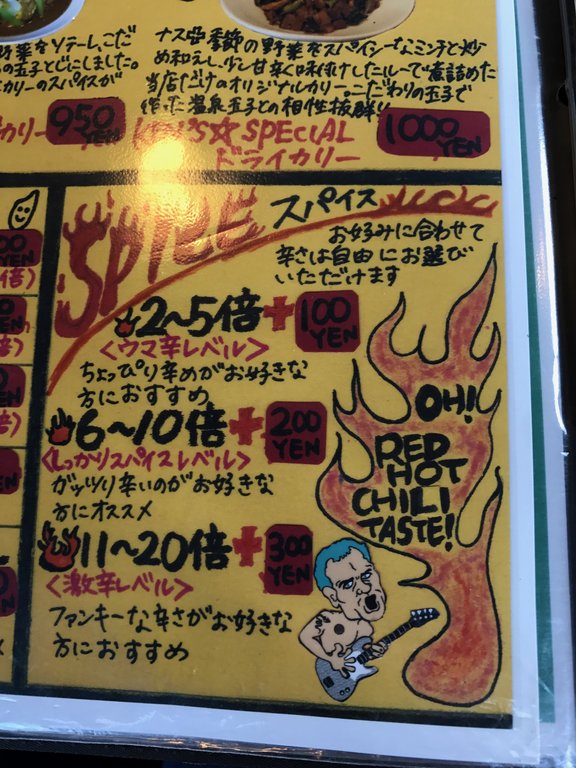 ナス🍆季節の野菜をスパイシーなミンチと炒
め和えし、少し甘辛く味付けしたルーで煮詰めた
当店だけのオリジナルカリー。こだわりの玉子で
作った温泉玉子との相性抜群!!
SPECIAL
ドライカリー
1000 YEN
野菜をソテーし、こだ
の玉子とじにしました。
カリーのスパイスが
カリー
950 YEN
SPICE スパイス
お好みに合わせて
辛さは自由にお選び
いただけます
2〜5倍+100 YEN
<ウマ辛レベル>
ちょっぴり辛めがお好きな
方におすすめ
6〜10倍+200 YEN
<しっかりスパイスレベル>
ガッツリ辛いのがお好きな
方にオススメ
11〜20倍+300 YEN
<激辛レベル>
ファンキーな辛さがお好きな
方におすすめ
OH!
RED
HOT
CHILI
TASTE!